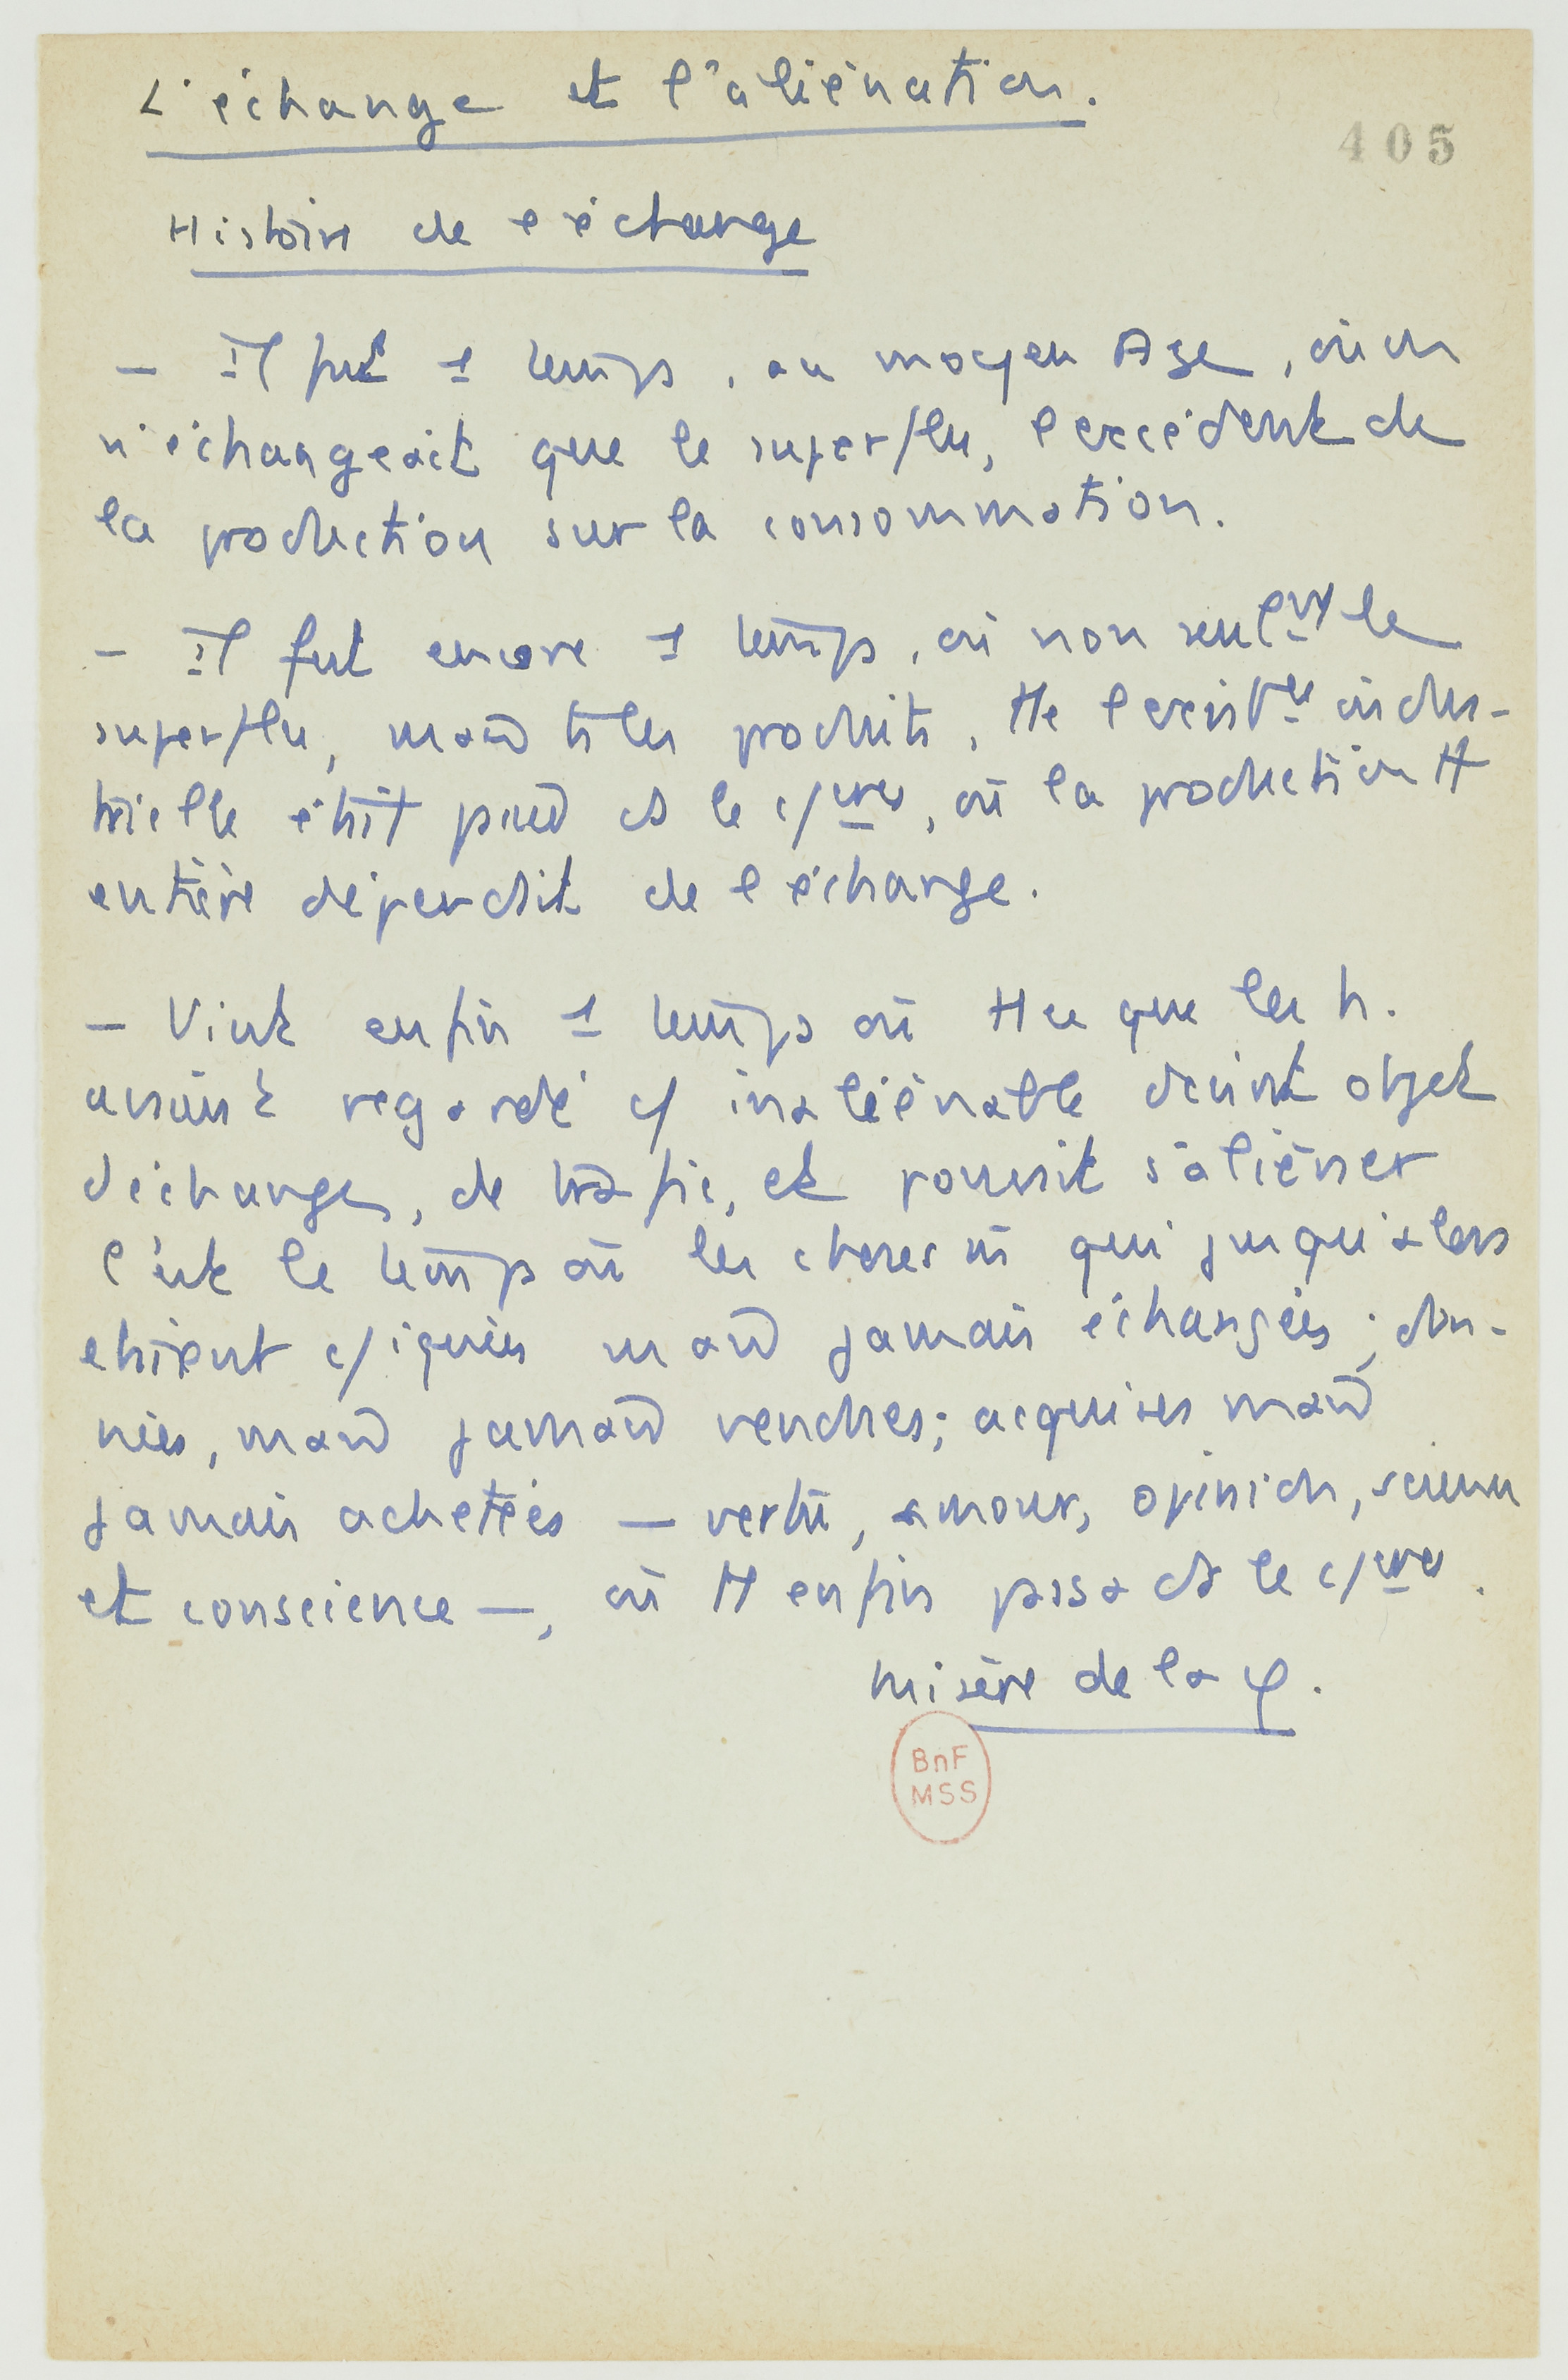 L'échange et l'aliénation.
405
Histoire de l'échange
— Il fut 1 temps, au moyen Age, où on
n'échangeait que le superflu, l'excédent de
la production sur la consommation.
— Il fut encore 1 temps, où non seulmt le
superflu, mais ts les produits, tte l'existce indus-
trielle était passé ds le c/erce, où la production tt
entière dépendait de l'échange.
— Vint enfin 1 temps où tt ce que les h.
avaient regardé c/ inaliénable devint objet
d'échange, de trafic, et pouvait s'aliéner
C'est le temps où les choses m qui jusqu'alors
etaient c/iquées mais jamais échangées ; don-
nées, mais jamais vendues; acquises mais
jamais achetées — vertu, amour, opinion, science
et conscience —, où tt enfin passa ds le c/erce.
Misère de la φ.
BnF
MSS